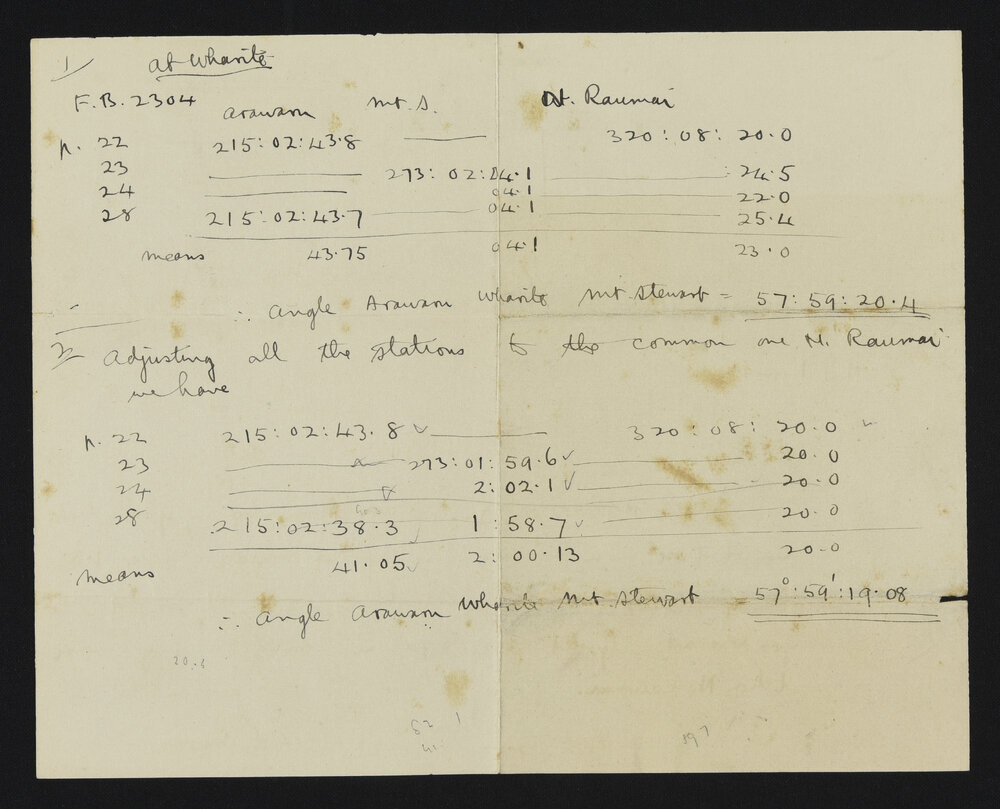 1/ at Wharite
F.B. 2304 Arawaru Mt. S. N. Raumai
p. 22 215:02:43.8 —— 320:08:20.0
23 —— 273:02:04.1 —— 24.5
24 —— 04.1 —— 22.0
28 215:02:43.7 —— 04.1 —— 25.4
means 43.75 04.1 23.0
∴ angle Arawaru Wharite Mt Stewart = 57:59:20.4
2/ Adjusting all the stations to the common one N. Raumai
we have
p. 22 215:02:43.8 ✓ —— 320:08:20.0 ✓
23 —— 273:01:59.6 ✓ —— 20.0
24 —— 2:02.1 ✓ —— 20.0
28 215:02:38.3 ✓ 1:58.7 ✓ —— 20.0
means 41.05 ✓ 2:00.13 20.0
∴ angle Arawaru Wharite Mt Stewart = 57°:59':19.08
82 1
41